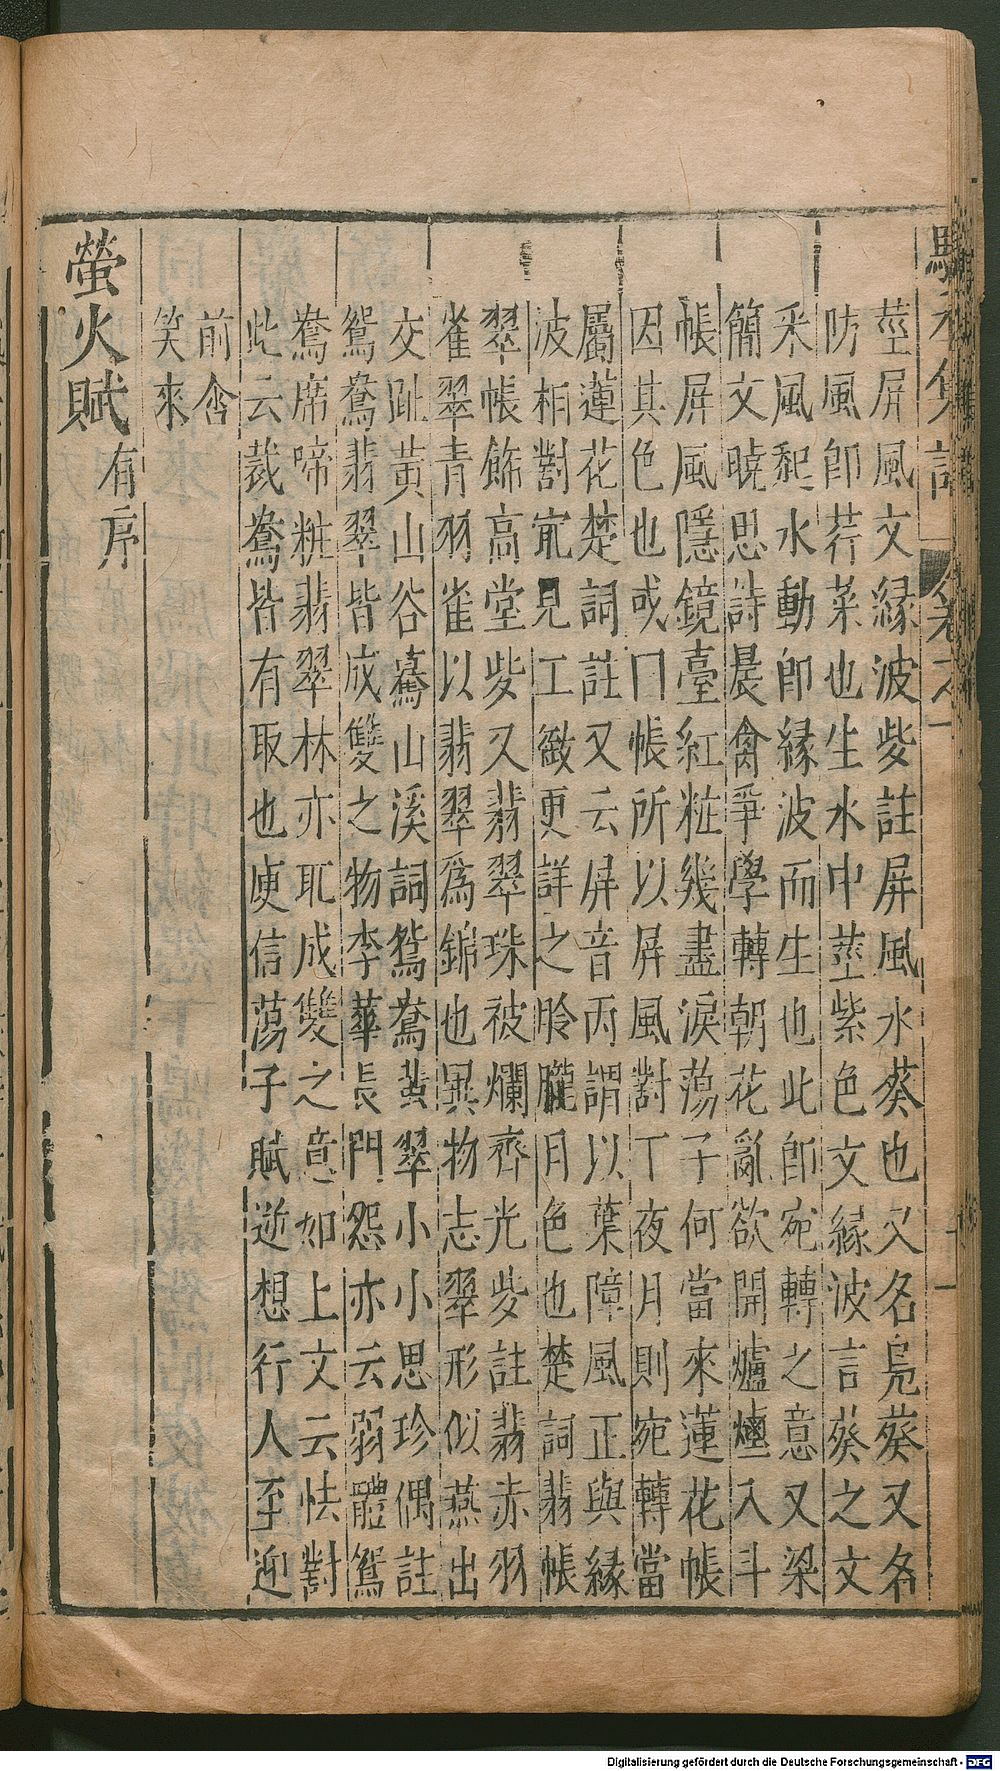 莖屏風文緣波些註屏風水葵也又名鳧葵又名
防風卽荇菜也生水中莖紫色文緣波言葵之文
釆風起水動卽緣波而生也此卽宛轉之意又梁
簡文曉思詩晨禽爭學轉朝花亂欲開爐煙入斗
帳屏風隱鏡臺紅粧幾盡淚蕩子何當來蓮花帳
因其色也或囗帳所以屏風對丁夜月則宛轉當
屬蓮花楚詞註又云屏音丙謂以葉障風正與緣
波相對宛見工緻更詳之朎朧月色也楚詞翡帳
翠帳飾高堂些又翡翠珠被爛齊光些註翡赤羽
雀翠青羽雀以翡翠爲錦也異物志翠形似燕出
交趾黃山谷驀山溪詞鴛鴦翡翠小小思珍偶註
鴛鴦翡翠皆成雙之物李華長門怨亦云弱體鴛
鴦席啼粧翡翠林亦取成雙之意如上文云怯對
此云裁鴦皆有取也庾信蕩子賦逆想行人至迎
前含
笑來
螢火賦有序
Digitalisierung gefördert durch die Deutsche Forschungsgemeinschaft - DFG